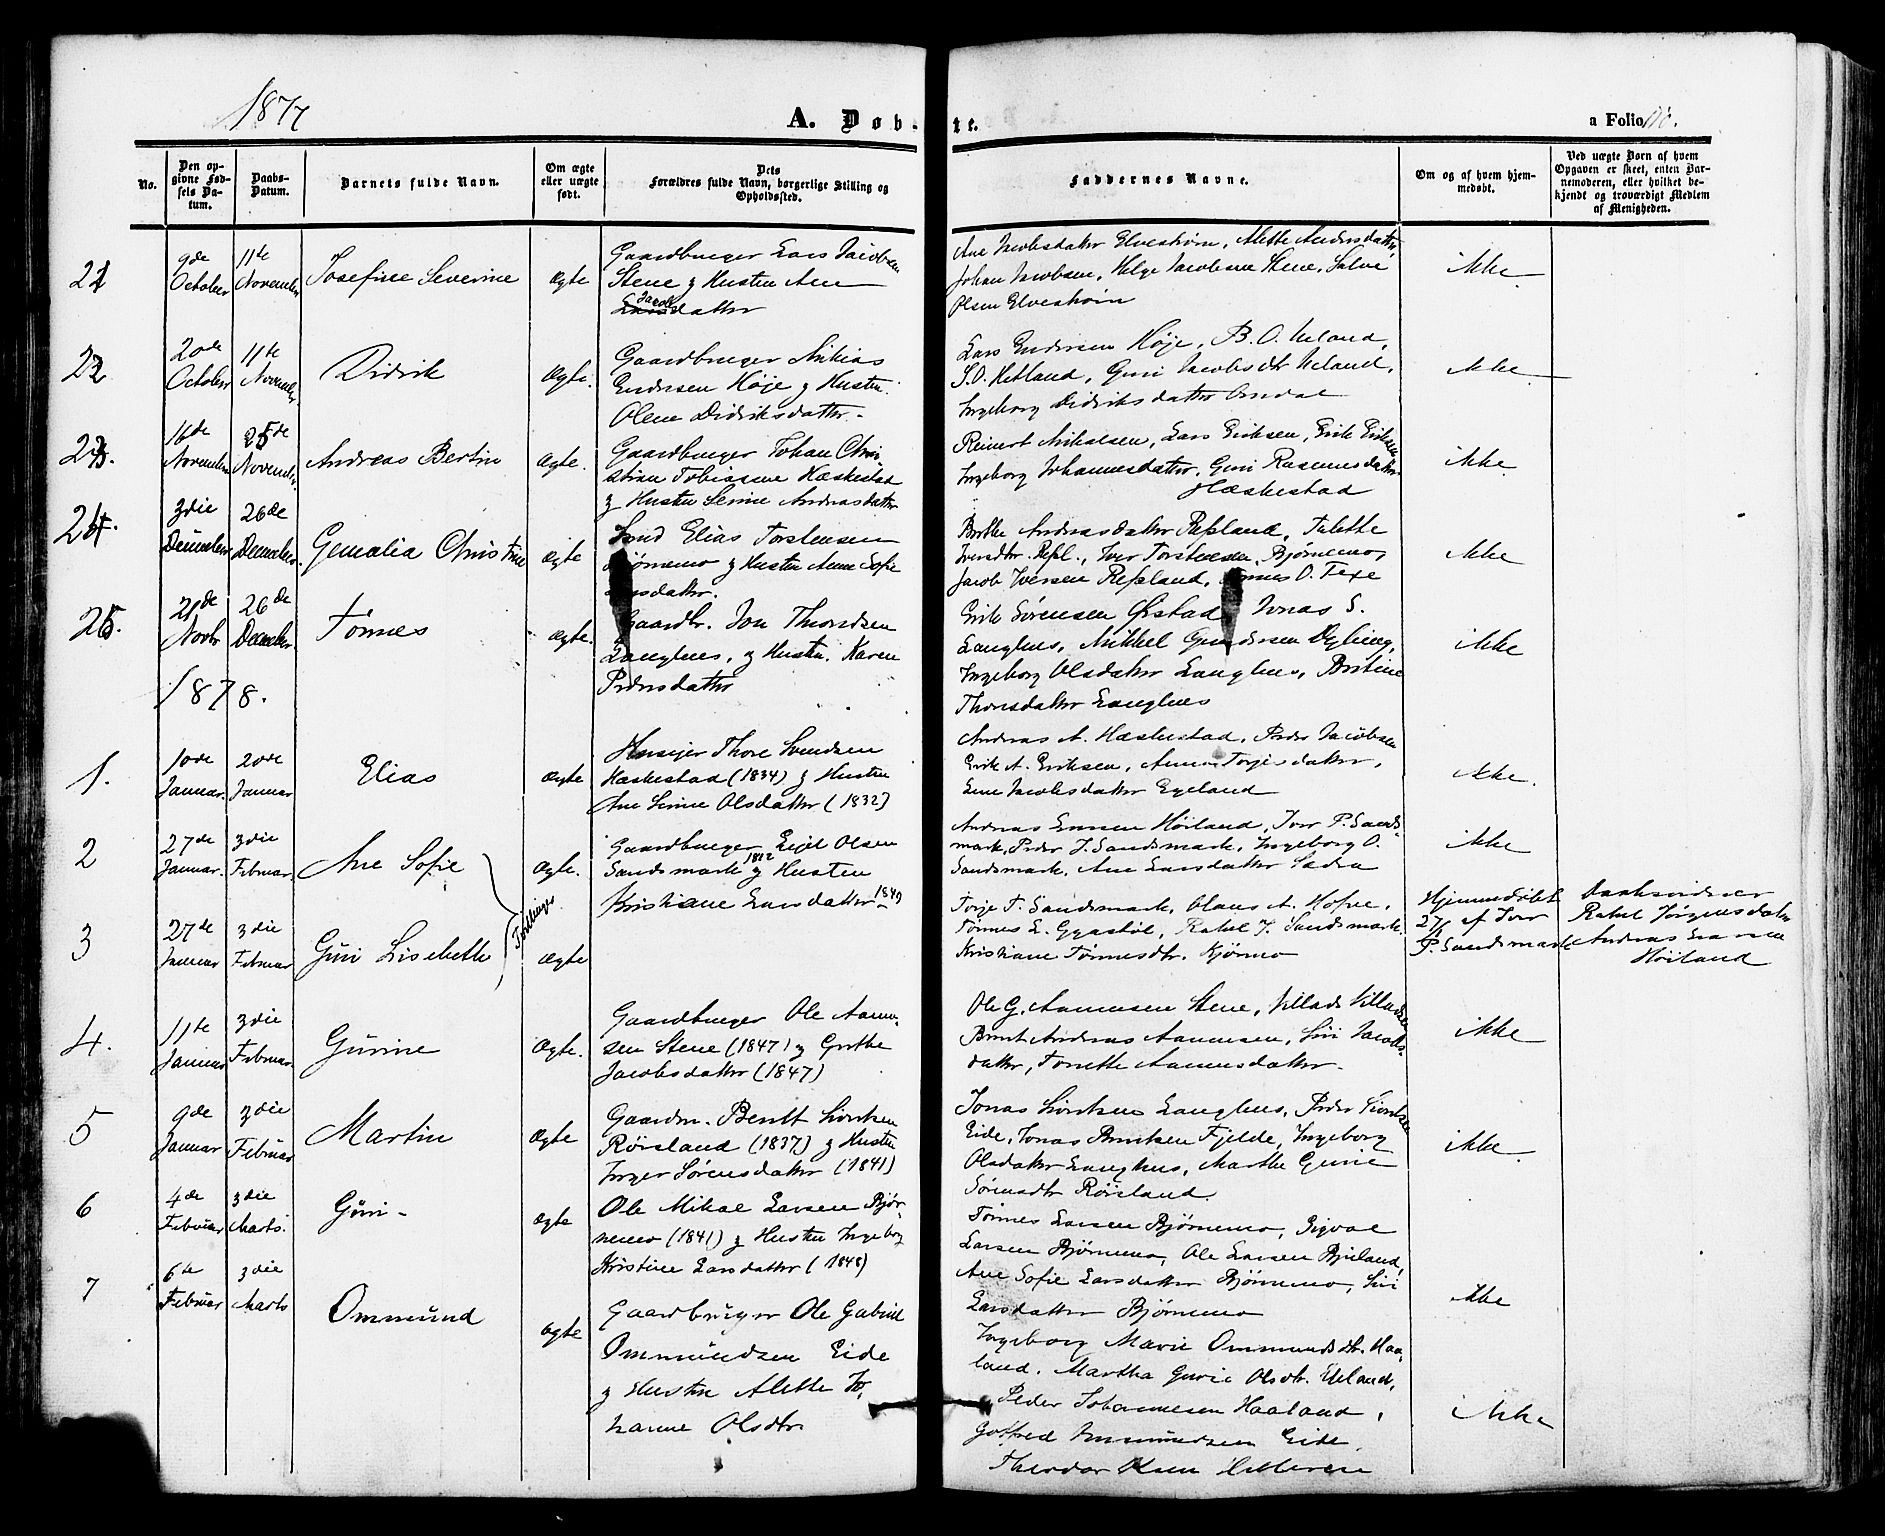 1877
A. Døb-
te.
a Folio
No.
Den op-
givne Fød-
sels Da-
tum.
Daabs-
Datum.
Barnets fulde Navn.
Om ægte
eller uægte
født.
Dets
Forældres fulde Navn, borgerlige Stilling og
Opholdssted.
Faddernes Navne.
Om og af hvem hjem-
medøbt.
Ved uægte Børn af hvem
Opgaven er skeet, enten Bar-
nemoderen, eller hvilket be-
kjendt og troværdigt Medlem
af Menigheden.
21
9de
October
11te
November
Josefine Severine
Ægte
Gaardbruger Lars Jacobsen
Stene & Hustru Ane
Jacobs
datter
Ane Jacobsdatter Elvestrøm, Alette Andersdatter
Johan Jacobsen, Helge Jacobsen Stene, Salve
Olsen Elvestrøm
ikke
22
20de
October
11te
November
Didrik
Ægte.
Gaardbruger Mikias
Endresen Høje & Hustru
Olene Didriksdatter.
Lars Endresen Høje, B. O. Ueland,
S. O. Hetland, Guri Jacobsdtr Ueland,
Ingeborg Didriksdatter Omdal
ikke
23.
16de
November
25de
November
Andreas Bertin
Ægte.
Gaardbruger Johan Chri
stian Tobiassen Hæskestad
& Hustru Serine Andreasdatter
Reinert Mikalsen, Lars Eriksen, Erik Eriksen
Ingeborg Johannesdatter, Guri Rasmusdatter
Hæskestad
ikke
24.
3die
December
26de
December.
Gemalia Christine
Ægte
Elias Torstensen
Bjørnemo & Hustru Anne Sofie
datter.
Berthe Andreasdatter Refsland, Talette
Iversdtr. Refsl., Iver Torstensen Bjørnemo,
Jacob Iversen Refsland, Tønnes O. Fexe
ikke
25.
21de
Novbr
26de
December
Tønnes
Ægte.
Gaardbr. Jon Thorsdsen
Langhus, & Hustru. Karen
Pedersdatter
Erik Sørensen Ørstad, Jonas S.
Langhus, Mikkel Gundersen Dybing,
Ingeborg Olsdatter Langhus, Bertine
Thorsdatter Langhus
ikke
1878.
1.
10de
Januar.
20de
Januar
Elias
Ægte
Husejer Thore Svendsen
Hæskestad (1834) & Hustru
Ane Serine Olsdatter (1832)
Andreas A. Hæskestad, Peder Jacobsen
Erik A. Eriksen, Anne Torjesdatter,
Lene Jacobsdatter Egeland
ikke.
2
27de
Januar.
3die
Februar.
Ane Sofie
Ægte.
Gaardbruger Eigil Olsen
Sandsmark 1842 & Hustru
Kristiane Larsdatter 1847
Andreas Larsen Høiland, Iver P. Sands-
mark, Peder J. Sandsmark, Ingeborg O.
Sandsmark, Ane Larsdatter
ikke
Tvillinger
3
27de
Januar
3die
Februar
Guri Lisebette
Ægte
Torje T. Sandsmark, Claus A. Hofve,
Tønnes L. Gyastøl, Rakel J. Sandsmark.
Kristiane Tønnesdtr. Kjørmo
Hjemmedøbt
27/1 af Iver
P. Sandsmark
Daabsvidner
Rakel Jørgensdatter
Andreas Larsen
Høiland
4.
11te
Januar
3die
Februar
Gurine
Ægte.
Gaardbruger Ole Aanen-
sen Stene (1847) & Grethe
Jacobsdatter (1847)
Ole G. Aanensen Stene, Villads Villadsen
Bernt Andreas Aanensen, Siri Jacobs-
datter, Tonette Aanensdatter.
ikke
5
9de
Januar
3die
Februar
Martin
Ægte
Gaardm. Bentt Sivertsen
Røisland (1837) & Hustru
Inger Sørensdatter (1841)
Jonas Sivertsen Langhus, Peder Sivertsen
Eide, Jonas Berntsen Fjelde, Ingeborg
Olsdatter Langhus, Marthe Gurie
Sørensdtr Røisland.
ikke.
6
4de
Februar
3die
Marts.
Guri-
Ægte
Ole Mikal Larsen Bjør-
nemo (1841) & Hustru Ingeborg
Kristine Larsdatter (1848)
Tønnes Larsen Bjørnemo, Sigvae
Larsen Bjørnemo, Ole Larsen Bjuland,
Ane Sofie Larsdatter Bjørnemo, Siri
Larsdatter Bjørnemo
ikke
7
6te
Februar
3die
Marts
Ommund
Ægte
Gaardbruger Ole Gabriel
Ommundsen Eide
& Hustru Alette Jo-
hanne Olsdtr
Ingeborg Marie Ommundsdt. Haa-
land, Martha Gurie Olsdtr. Ueland,
Peder Johannesen Haaland,
Gotfred Ommundsen Eide,
Theodor Olsen
ikke